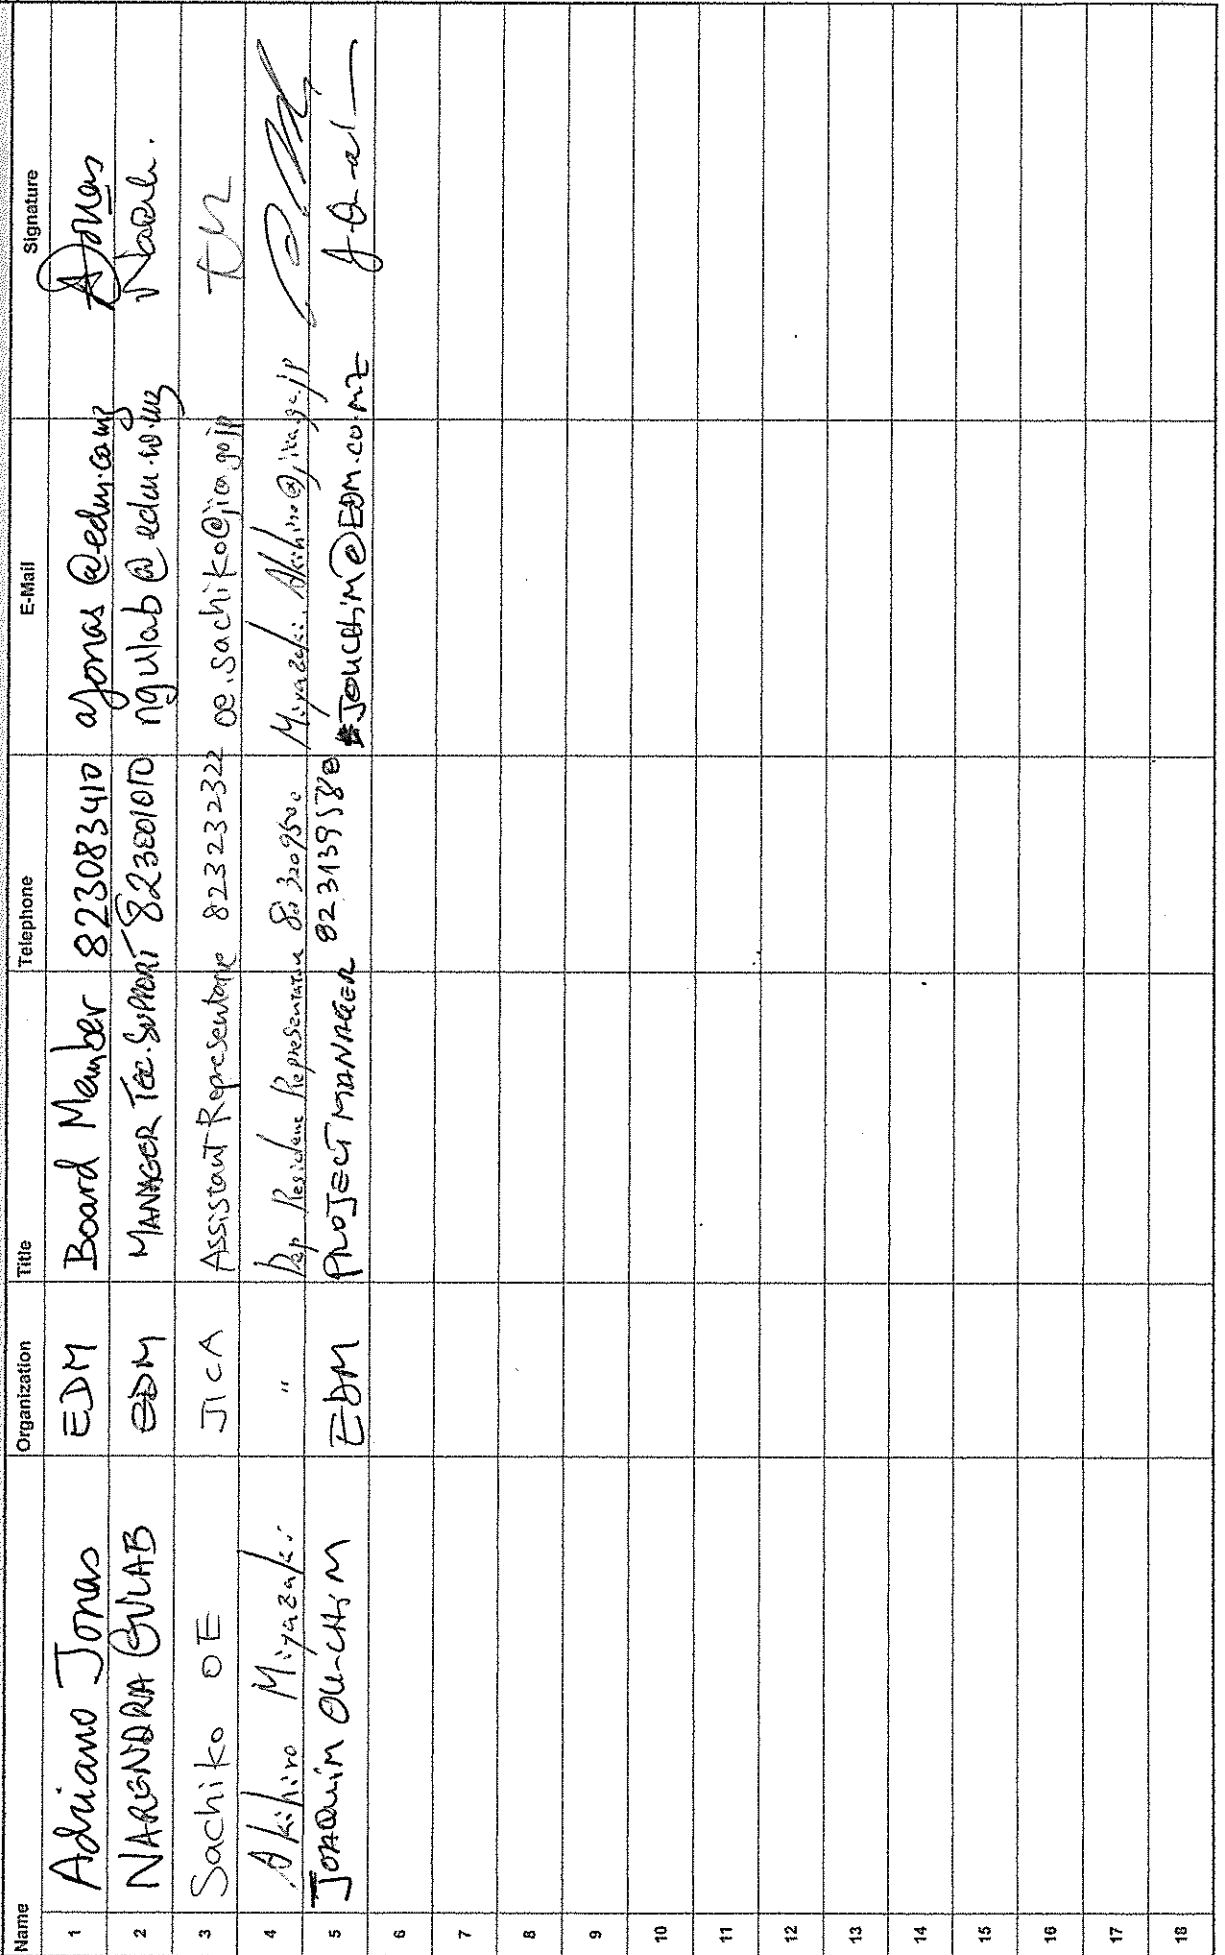 Name Organization Title Telephone E-Mail Signature
1 Adriano Jonas EDM Board Member 823083410 ajonas@edm.co.mz AJonas
2 NARENDRA GULAB EDM MANAGER Tec. SUPPORT 823801010 ngulab@edm.co.mz
3 Sachiko OE JICA Assistant Representative 823232322 oe.sachiko@jica.go.jp
4 Akihiro Miyazaki " Dep Resident Representative Miyazaki.Akihiro@jica.go.jp
5 JOAQUIM OU-CHIM EDM PROJECT MANAGER 823139580 JOUCHIM@EDM.co.mz
6
7
8
9
10
11
12
13
14
15
16
17
18